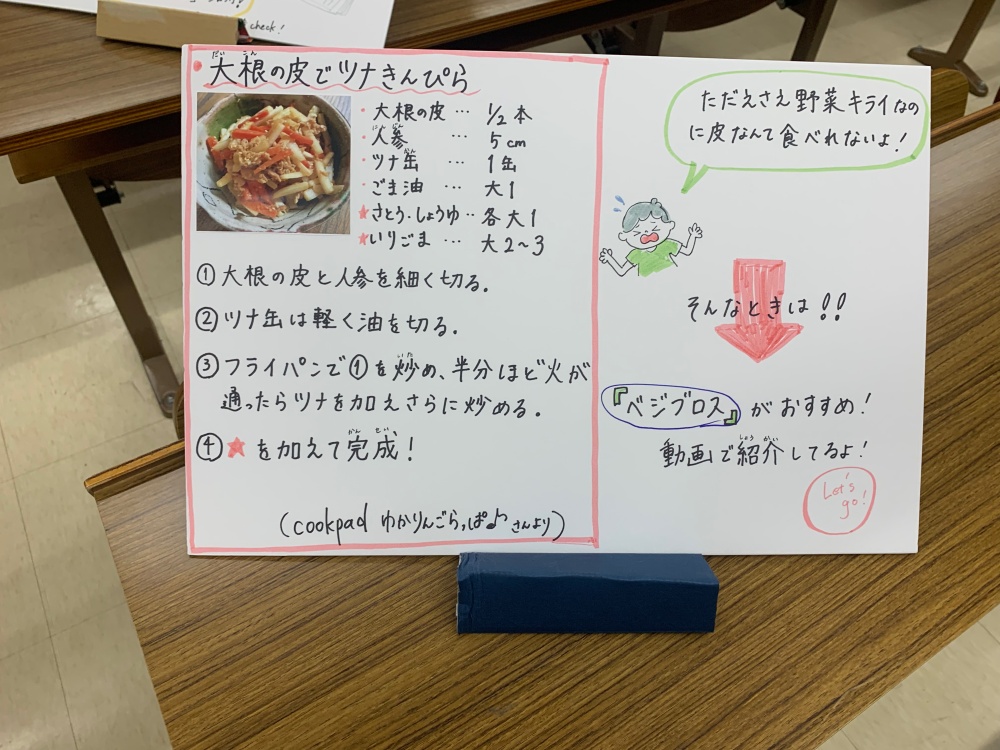 check!
・大根の皮でツナきんぴら
・大根の皮 … 1/2本
・人参 … 5cm
・ツナ缶 … 1缶
・ごま油 … 大1
★さとう・しょうゆ‥各大1
★いりごま … 大2〜3
①大根の皮と人参を細く切る。
②ツナ缶は軽く油を切る。
③フライパンで①を炒め、半分ほど火が
通ったらツナを加えさらに炒める。
④★を加えて完成!
(cookpad ゆかりんごらっぱ♪さんより)
ただえさえ野菜キライなの
に皮なんて食べれないよ!
そんなときは!!
『ベジブロス』がおすすめ!
動画で紹介してるよ!
Let's
go!